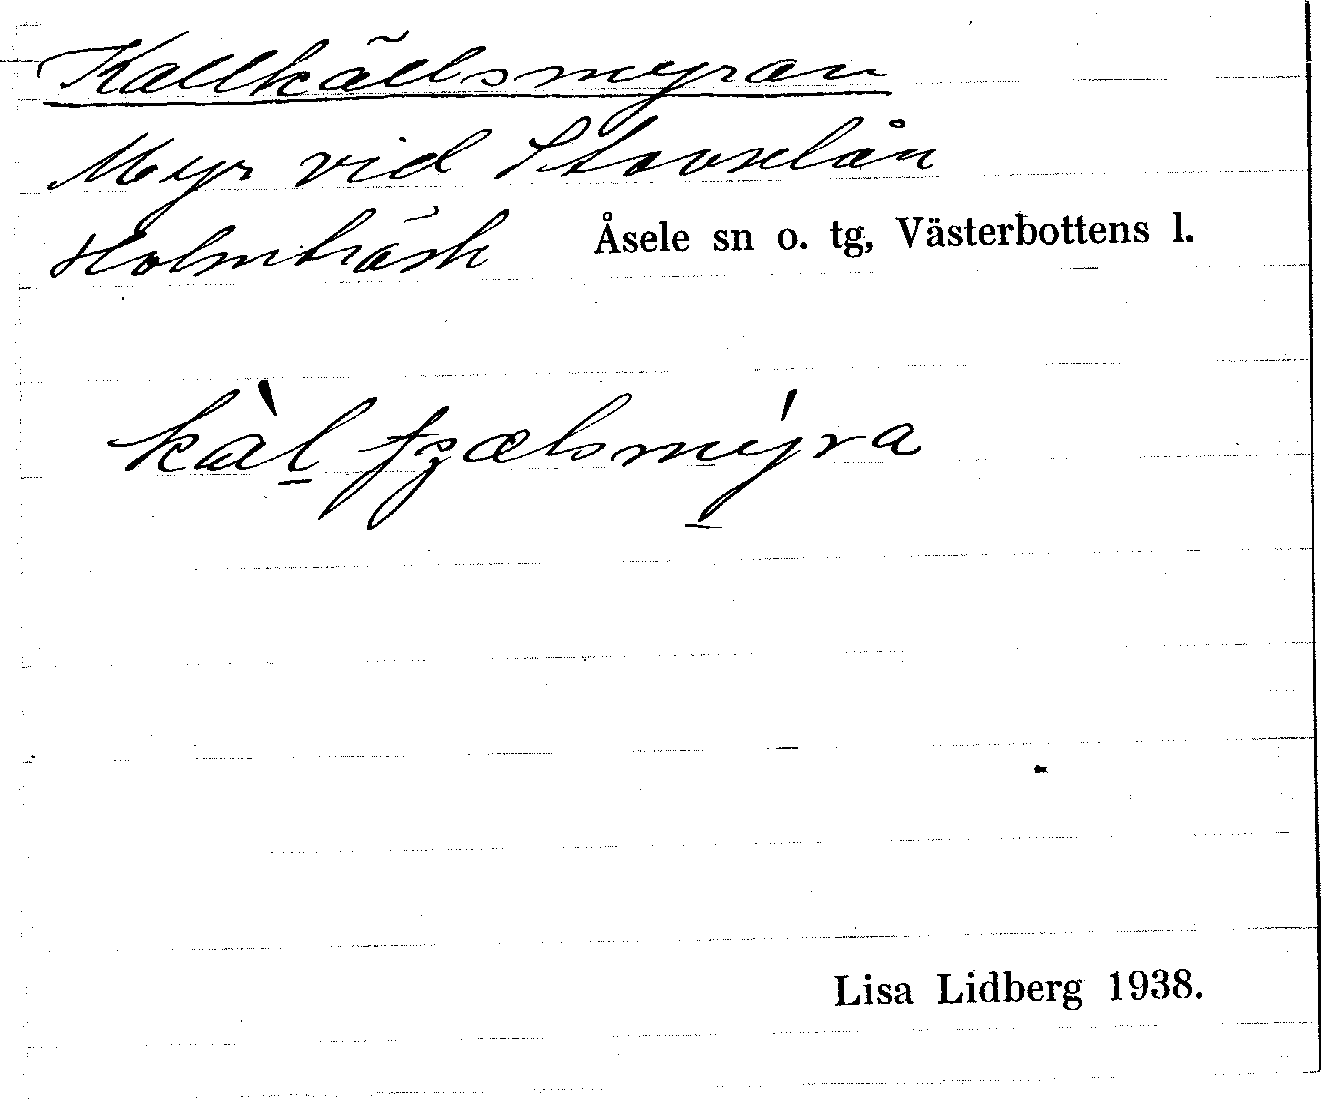 Kallkällsmyran
Myr vid Stavselån
Holmträsk Åsele sn o. tg, Västerbottens l.
kàl̲ fʒælsmýra
Lisa Lidberg 1938.